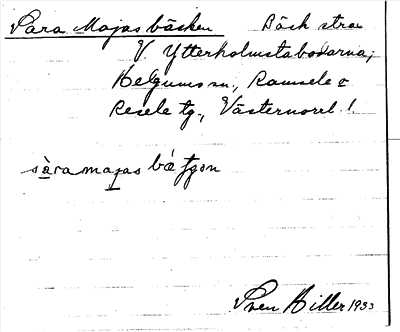 Sara Majas bäcken Bäck strax
V. Ytterholmstabodarna;
Helgums sn., Ramsele o
Resele tg., Västernorrl.
sàra majas bä
Sven Hiller 1933